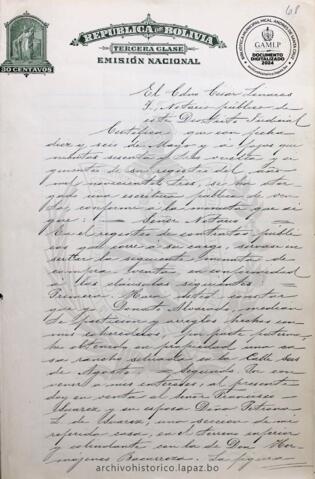 68
REPUBLICA DE BOLIVIA
TERCERA CLASE
EMISIÓN NACIONAL
30 CENTAVOS
GAMLP
DOCUMENTO
DIGITALIZADO
2024
El Cdno Cesar Linares
F. Notario público de
este Distrito Judicial
Certifica que con fecha
diez y seis de Mayo y a fojas qui
nientos sesenta y tres vuelta y si
guientes de su registro del año
mil novecientos tres, se ha otor
gado una escritura pública de ven
ta, conforme a la minuta que si
gue: — Señor Notario —
En el registro de contratos públi
cos que corre a su cargo, sírvase in
sertar la siguiente minuta de
compra venta en conformidad
a las clausulas siguientes —
Primera. — Hará usted constar
que yo Donato Alvarado, median
te particion y arreglo hecho con
mis coherederos, con parte paterna,
he obtenido en propiedad una ca
sa rancho situada en la Calle Seis
de Agosto. — Segunda. En con
venir a mis intereses, al presente
doy en venta al señor Francisco
Eduarez y su esposa Doña Petrona
L. de Eduarez, una seccion de mi
referida casa, en el terreno inferior
y colindante con la de Don Her
mójenes Becerra. La figura
archivohistorico.lapaz.bo